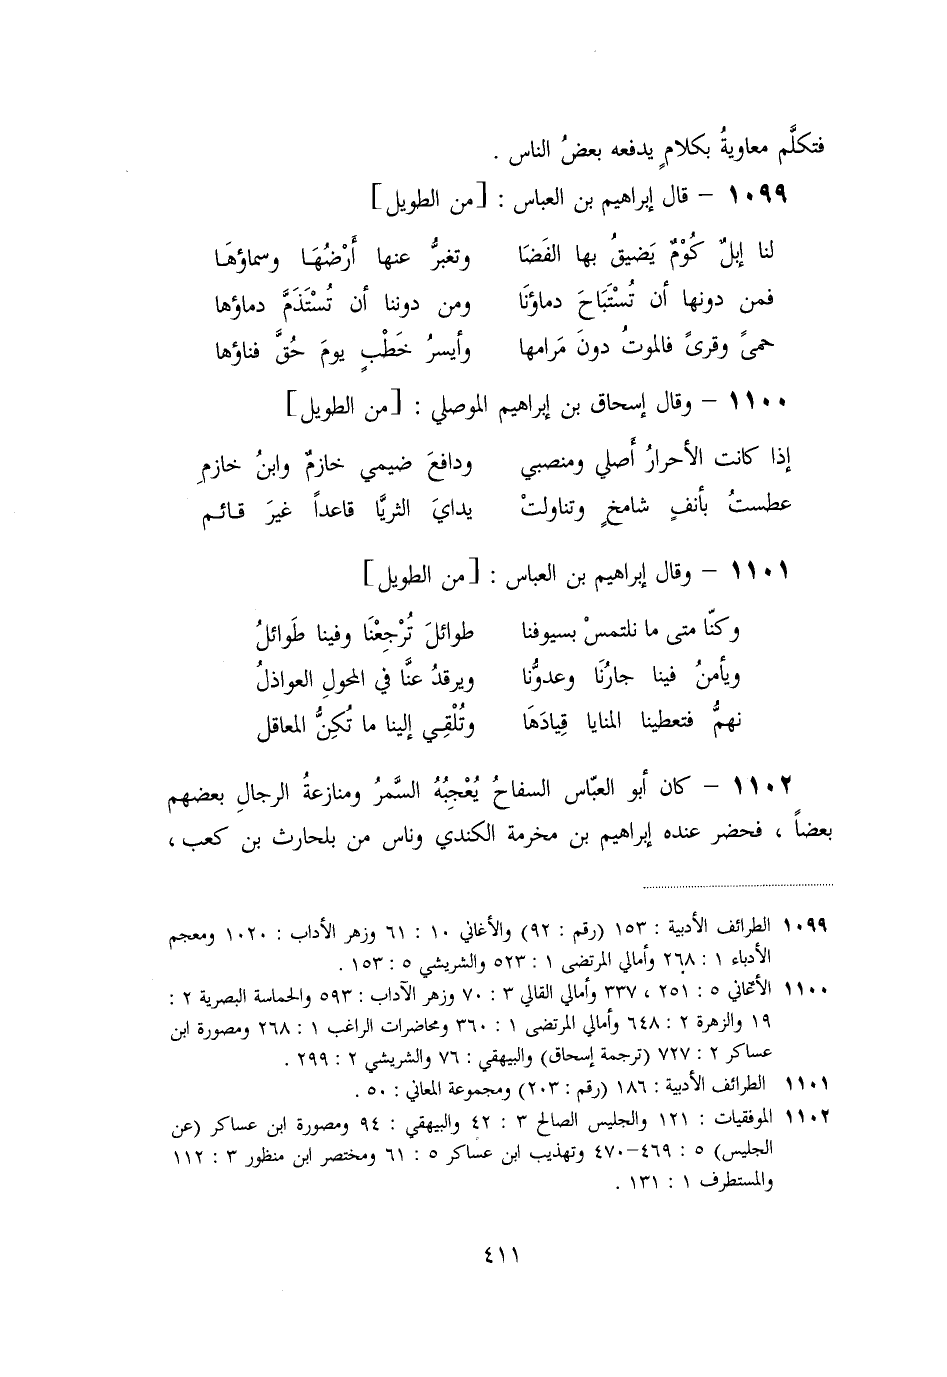 فتكلَّم معاويةُ بكلامٍ يدفعه بعضُ الناس .
١٠٩٩ – قال إبراهيم بن العباس : [من الطويل]
لنا إبلٌ كُوْمٌ يَضيقُ بها الفَضَا وتغبرُّ عنها أَرْضُهَا وسماؤهَا
فمن دونها أن تُسْتَبَاحَ دماؤنَا ومن دوننا أن تُسْتَذَمَّ دماؤها
حمىً وقرىً فالموتُ دونَ مَرامها وأيسرُ خَطْبٍ يومَ حُقَّ فناؤها
١١٠٠ – وقال إسحاق بن إبراهيم الموصلي : [من الطويل]
إذا كانت الأحرارُ أَصلي ومنصبي ودافعَ ضيمي خازمٌ وابنُ خازمِ
عطستُ بأنفٍ شامخٍ وتناولتْ يدايَ الثريَّا قاعداً غيرَ قائم
١١٠١ – وقال إبراهيم بن العباس : [من الطويل]
وكنّا متى ما نلتمسْ بسيوفنا طوائلَ تُرْجِعْنَا وفينا طَوائلُ
ويأمنُ فينا جارُنَا وعدوُّنا ويرقدُ عنَّا في المحولِ العواذلُ
نهمُّ فتعطينا المنايا قِيادَهَا وتُلْقِي إلينا ما تُكِنُّ المعاقل
١١٠٢ – كان أبو العبّاس السفاحُ يُعْجِبُهُ السَّمرُ ومنازعةُ الرجالِ بعضهم
بعضاً ، فحضر عنده إبراهيم بن مخرمة الكندي وناس من بلحارث بن كعب ،
١٠٩٩ الطرائف الأدبية : ١٥٣ (رقم : ٩٢) والأغاني ١٠ : ٦١ وزهر الأداب : ١٠٢٠ ومعجم
الأدباء ١ : ٢٦٨ وأمالي المرتضى ١ : ٥٢٣ والشريشي ٥ : ١٥٣ .
١١٠٠ الأغاني ٥ : ٢٥١ ، ٣٣٧ وأمالي القالي ٣ : ٧٠ وزهر الآداب : ٥٩٣ والحماسة البصرية ٢ :
١٩ والزهرة ٢ : ٦٤٨ وأمالي المرتضى ١ : ٣٦٠ ومحاضرات الراغب ١ : ٢٦٨ ومصورة ابن
عساكر ٢ : ٧٢٧ (ترجمة إسحاق) والبيهقي : ٧٦ والشريشي ٢ : ٢٩٩ .
١١٠١ الطرائف الأدبية : ١٨٦ (رقم : ٢٠٣) ومجموعة المعاني : ٥٠ .
١١٠٢ الموفقيات : ١٢١ والجليس الصالح ٣ : ٤٢ والبيهقي : ٩٤ ومصورة ابن عساكر (عن
الجليس) ٥ : ٤٦٩–٤٧٠ وتهذيب ابن عساكر ٥ : ٦١ ومختصر ابن منظور ٣ : ١١٢
والمستطرف ١ : ١٣١ .
٤١١